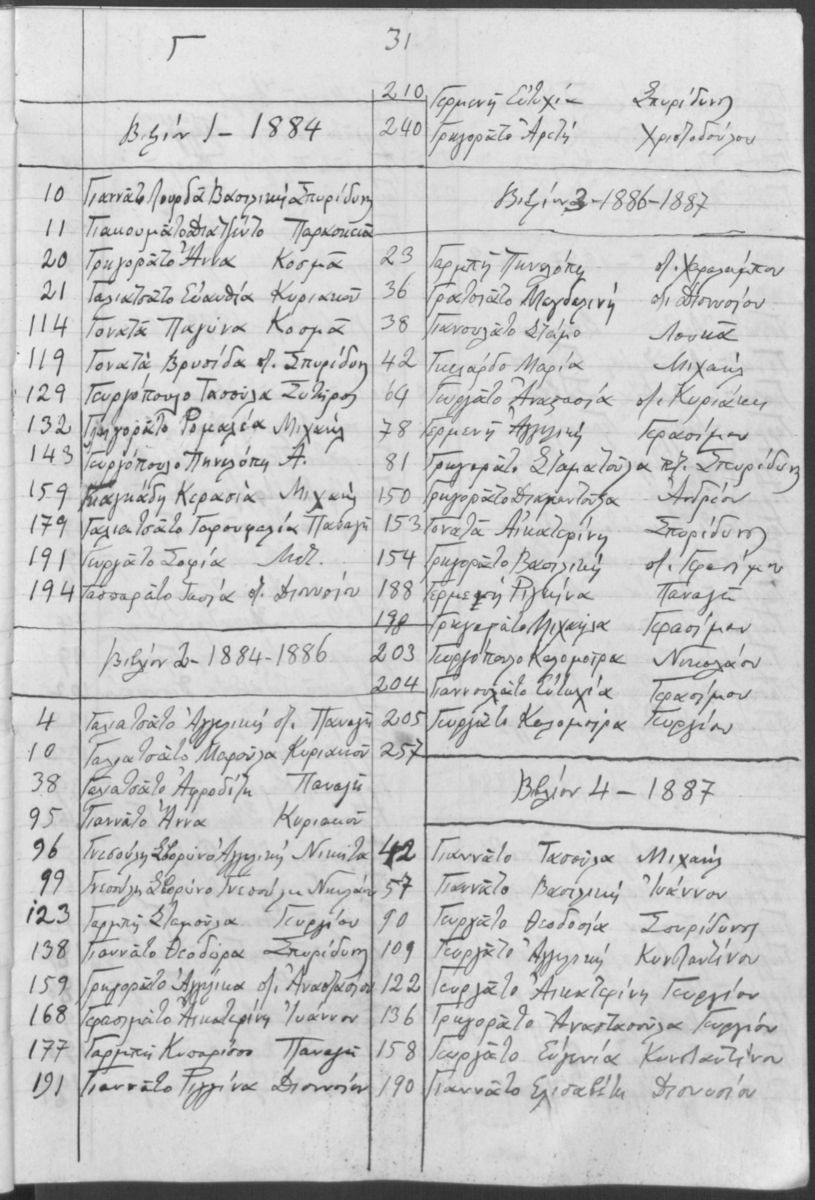 Γ
31
Βιβλίον 1 - 1884
10 Γιαννᾶτο Λουρδᾶ Βασιλική Σπυρίδωνος
11 Γιακουμᾶτο Διατζέντο Παρασκευᾶ
20 Γρηγορᾶτο Ἄννα Κοσμᾶ
21 Γαλιατσᾶτο Εὐανθία Κυριακοῦ
114 Γονατᾶ Παγώνα Κοσμᾶ
119 Γονατᾶ Βρυσίδα Σπυρίδωνος
129 Γεωργόπουλο Τασούλα Σωτῆρος
132 Γρηγορᾶτο Ρομαλέα Μιχαήλ
143 Γεωργόπουλο Πηνελόπη Α.
159 Κερασία Μιχαήλ
179 Γαλιατσᾶτο Γαρουφαλία Παναγῆ
191 Γεωργᾶτο Σοφία
194 Γασπαρᾶτο Τασία Διονυσίου
Βιβλίον 2 - 1884-1886
4 Γαλιατσᾶτο Ἀγγελική Παναγῆ
10 Γαλιατσᾶτο Μαρούλα Κυριακοῦ
38 Γαλιατσᾶτο Ἀφροδίτη Παναγῆ
95 Γιαννᾶτο Ἄννα Κυριακοῦ
96 Γνεσούλη Σβορῶνο Ἀγγελική Νικήτα
99 Γνεσούλη Σβορῶνο Νικολάου
123 Γαρμπῆ Σταμούλα Γεωργίου
138 Γιαννᾶτο Θεοδώρα Σπυρίδωνος
159 Γρηγορᾶτο Ἀγγέλικα Ἀναστασίου
168 Γερασιμᾶτο Αἰκατερίνη Ἰωάννου
177 Γαρμπῆ Κυπαρίσσω Παναγῆ
191 Γιαννᾶτο Ρεγγίνα Διονυσίου
210 Γερμενῆ Εὐτυχία Σπυρίδωνος
240 Γρηγορᾶτο Ἀρετή Χριστοδούλου
Βιβλίον 3 - 1886-1887
23 Γαρμπῆ Πηνελόπη Χαραλάμπου
36 Γρατσιᾶτο Μαγδαληνή Διονυσίου
38 Γιανουλᾶτο Στάμο Λουκᾶ
42 Γκελάρδο Μαρία Μιχαήλ
64 Γεωργᾶτο Ἀναστασία Κυριάκου
78 Γερμενῆ Ἀγγελική Γερασίμου
81 Γρηγορᾶτο Σταματούλα Σπυρίδωνος
150 Γρηγορᾶτο Διαμαντούλα Ἀνδρέου
153 Γονατᾶ Αἰκατερίνη Σπυρίδωνος
154 Γρηγορᾶτο Βασιλική Γερασίμου
188 Γερμενῆ Ρεγγίνα Παναγῆ
198 Γρηγορᾶτο Μιχαήλα Γερασίμου
203 Γεωργόπουλο Καλομοίρα Νικολάου
204 Γιαννουλᾶτο Εὐτυχία Γερασίμου
205 Γεωργᾶτο Καλομοίρα Γεωργίου
257
Βιβλίον 4 - 1887
42 Γιαννᾶτο Τασούλα Μιχαήλ
57 Γιαννᾶτο Βασιλική Ἰωάννου
90 Γεωργᾶτο Θεοδοσία Σπυρίδωνος
109 Γεωργᾶτο Ἀγγελική Κωνσταντίνου
122 Γεωργᾶτο Αἰκατερίνη Γεωργίου
136 Γρηγορᾶτο Ἀναστασούλα Γεωργίου
158 Γεωργᾶτο Εὐγενία Κωνσταντίνου
190 Γιαννᾶτο Ελισαβέτη Διονυσίου